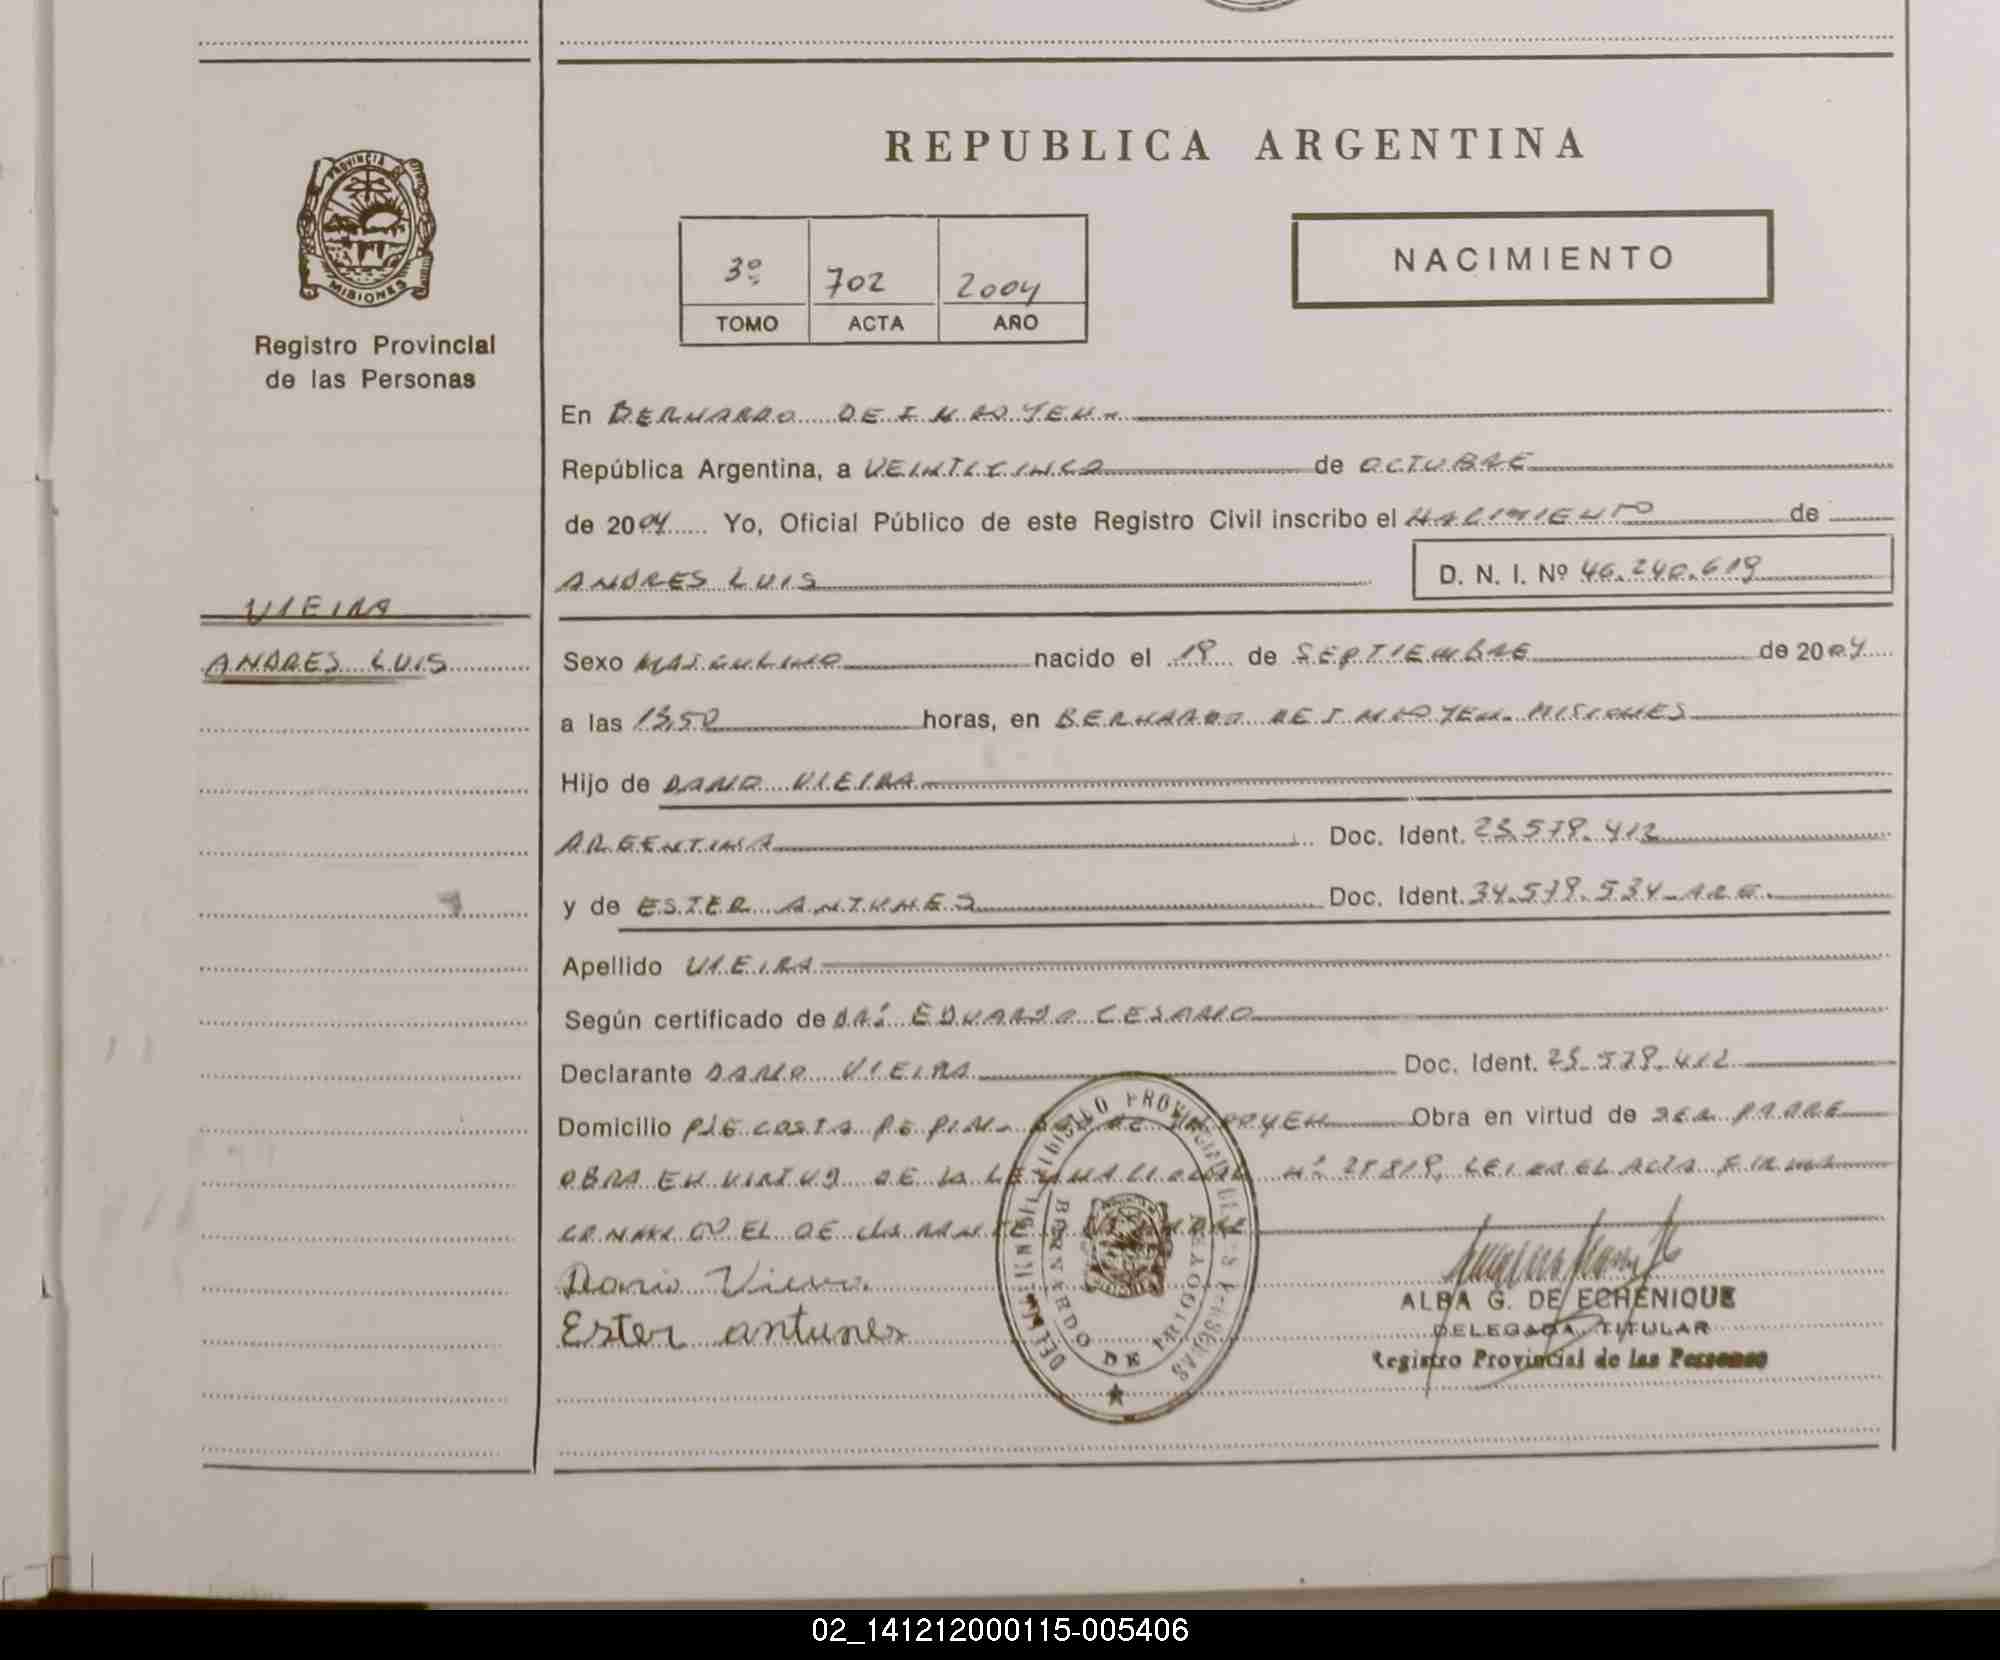 PROVINCIA DE
MISIONES
Registro Provincial
de las Personas
VIEIRA
ANDRES LUIS
REPUBLICA ARGENTINA
3º 702 2004
TOMO ACTA AÑO
NACIMIENTO
En BERNARDO DE IRIGOYEN
República Argentina, a VEINTICINCO de OCTUBRE
de 2004 Yo, Oficial Público de este Registro Civil inscribo el NACIMIENTO de
ANDRES LUIS D. N. I. Nº 46.240.619
Sexo MASCULINO nacido el 19 de SEPTIEMBRE de 2004
a las 13,50 horas, en BERNARDO DE IRIGOYEN. MISIONES
Hijo de DARIO VIEIRA
ARGENTINA Doc. Ident.
y de ESTER ANTUNES Doc. Ident. ARG.
Apellido VIEIRA
Según certificado de DR: EDUARDO CESARIO
Declarante DARIO VIEIRA Doc. Ident.
Domicilio PJE COSTA PEPIRI- Obra en virtud de SER PADRE
OBRA EN VIRTUD DE LA LEY NACIONAL Nº LEIDA EL ACTA FIRMA
CONMIGO EL DECLARANTE
Dario Vieira
Ester antunes
BERNARDO DE IRIGOYEN
ALBA G. DE ECHENIQUE
DELEGADA TITULAR
Registro Provincial de las Personas
02_141212000115-005406